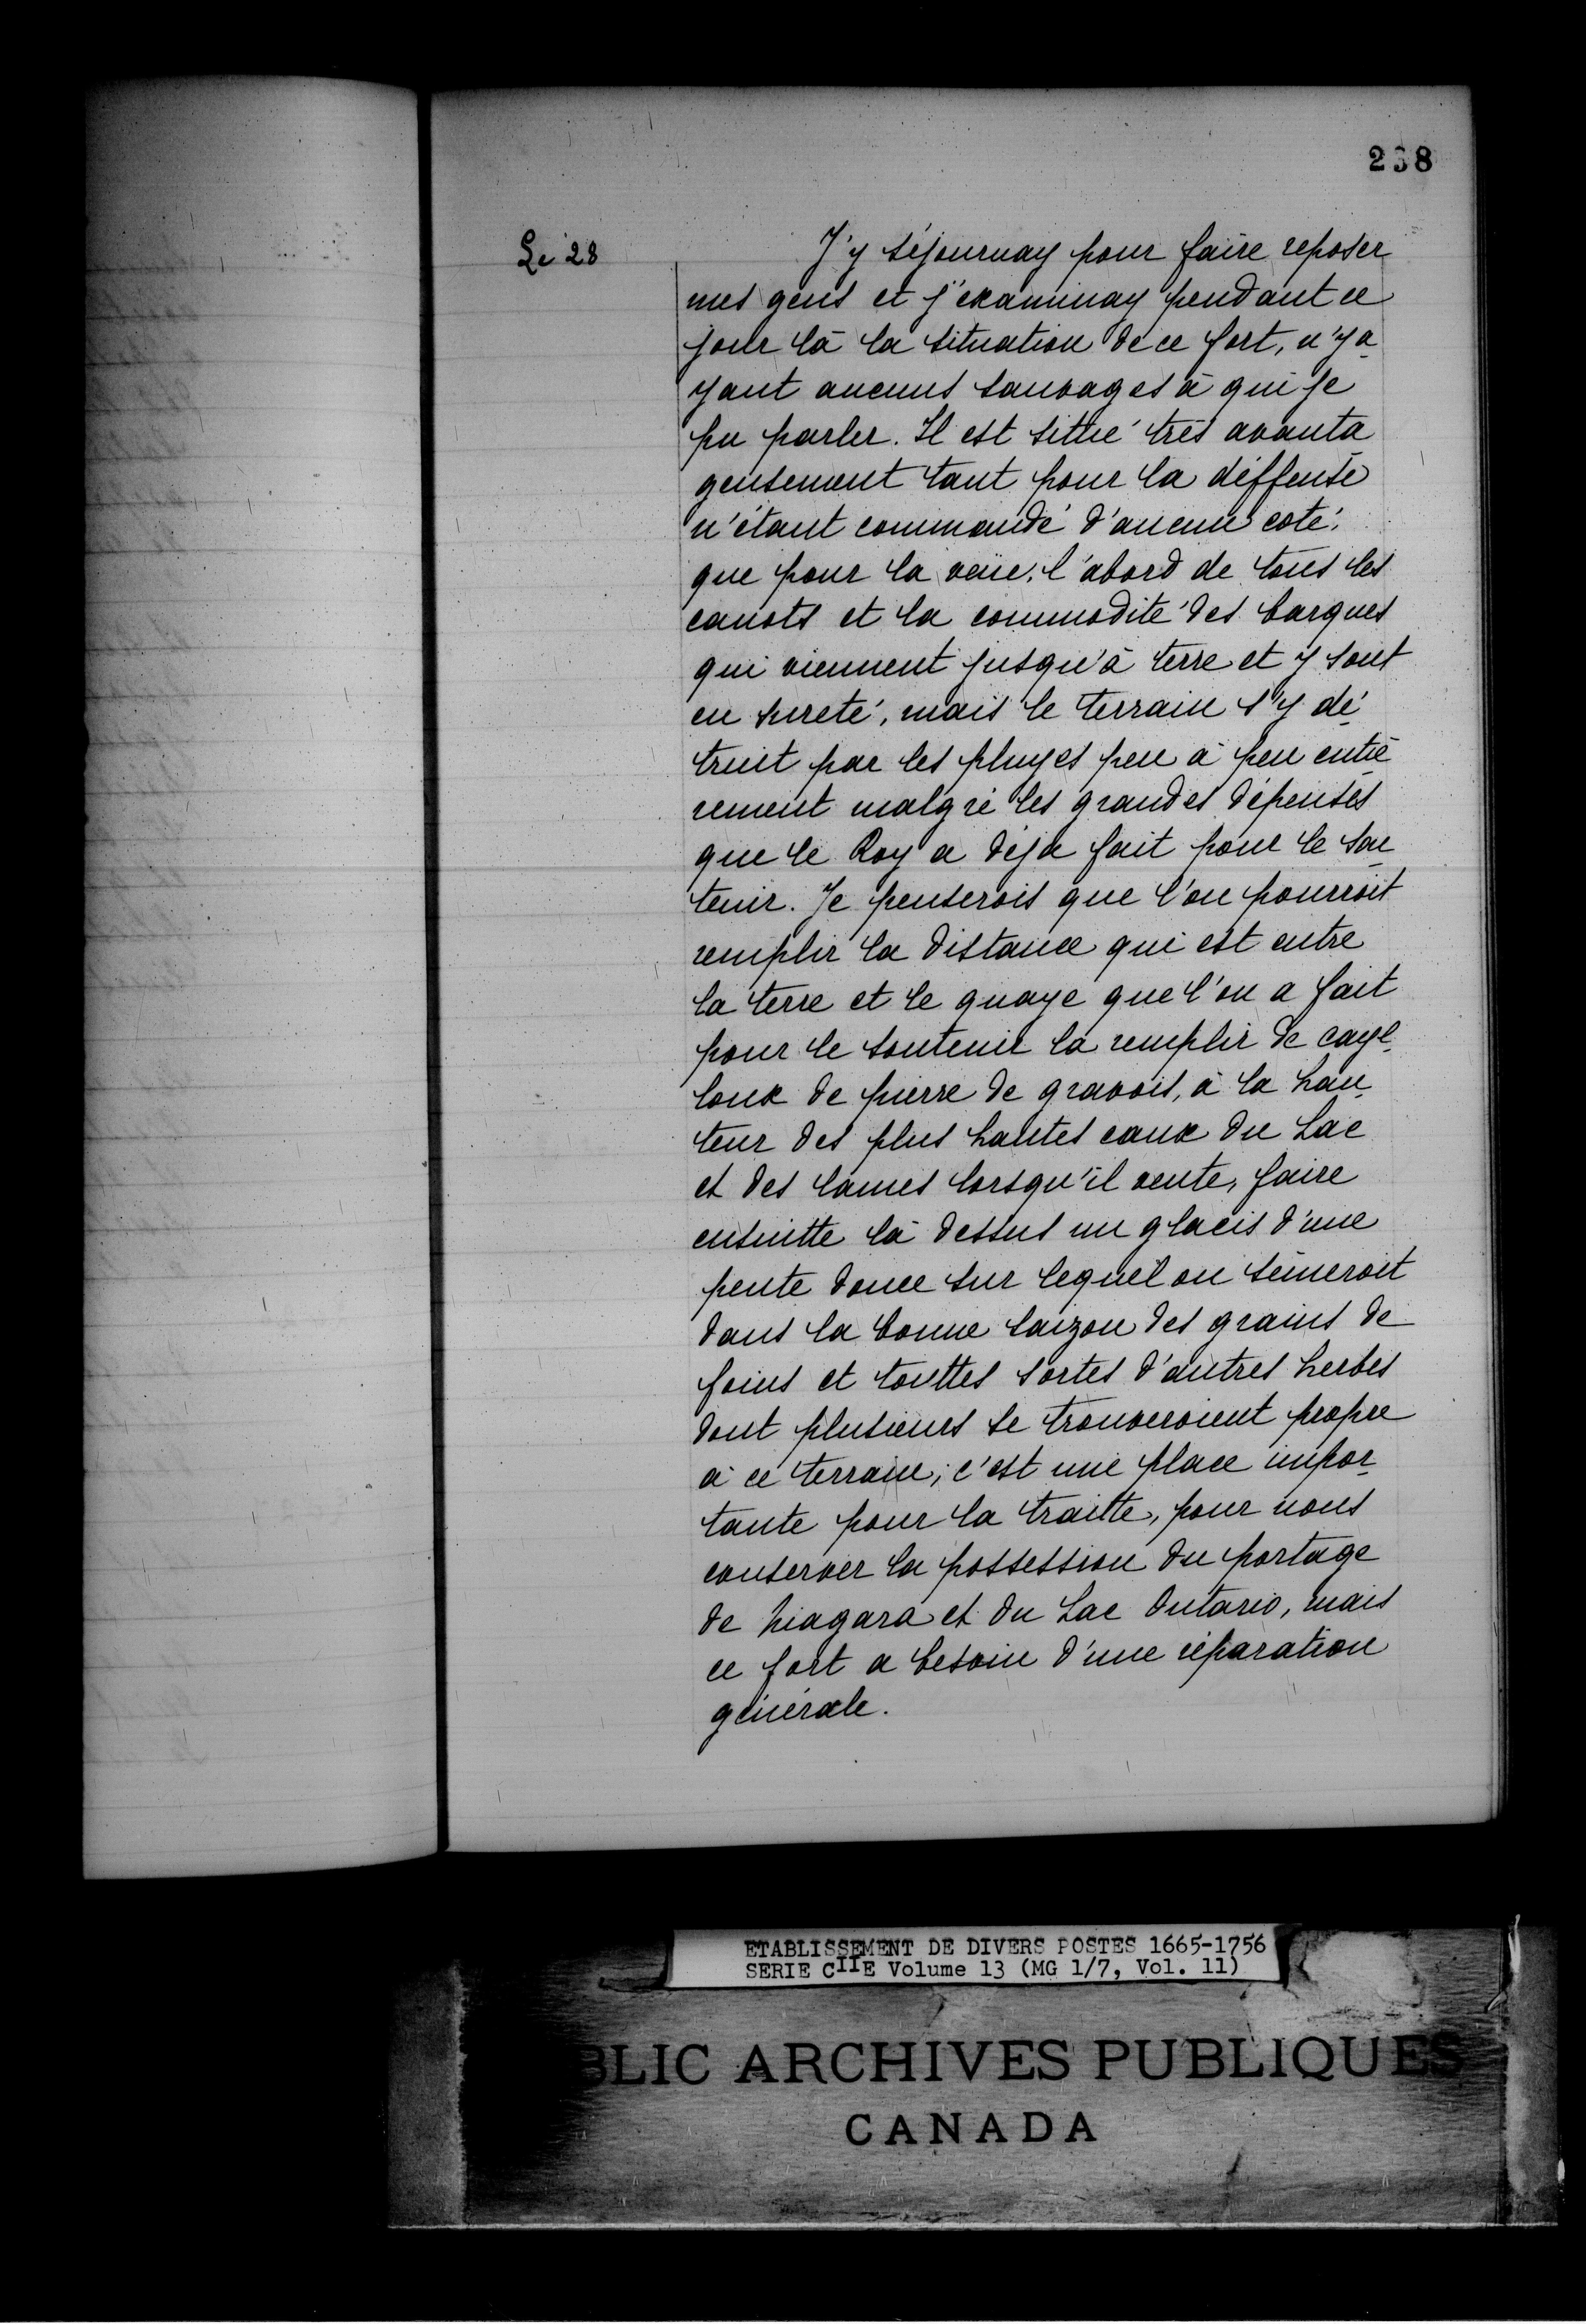 238
Le 28
J'y séjournay pour faire reposer
mes gens et j'examinay pendant ce
jour là la situation de ce fort, n'y a
yant aucuns sauvages à qui je
pu parler. Il est sittué très avanta
geusement tant pour la déffense
n'étant commandé d'aucun coté,
que pour la veüe, l'abord de tous les
canots et la commodité des barques
qui viennent jusqu'à terre et y sont
en sureté, mais le terrain s'y dé
truit par les pluyes peu à peu entiè
rement malgré les grandes dépenses
que le Roy a déja fait pour le sou
tenir. Je penserois que l'on pourroit
remplir la distance qui est entre
la terre et le quaye que l'on a fait
pour le soutenir la remplir de cayl
loux de pierre de gravois, à la hau
teur des plus hautes eaux du Lac
et des lames lorsqu'il vente, faire
ensuitte là dessus un glacis d'une
pente douce sur lequel on sèmeroit
dans la bonne saizon des grains de
foins et touttes sortes d'autres herbes
dont plusieurs se trouveroient propre
à ce terrain; c'est une place impor
tante pour la traitte, pour nous
conserver la possession du portage
de Niagara et du Lac Ontario, mais
ce fort a besoin d'une réparation
générale.
ETABLISSEMENT DE DIVERS POSTES 1665-1756
SERIE CIIE Volume 13 (MG 1/7, Vol. 11)
BLIC ARCHIVES PUBLIQUES
CANADA